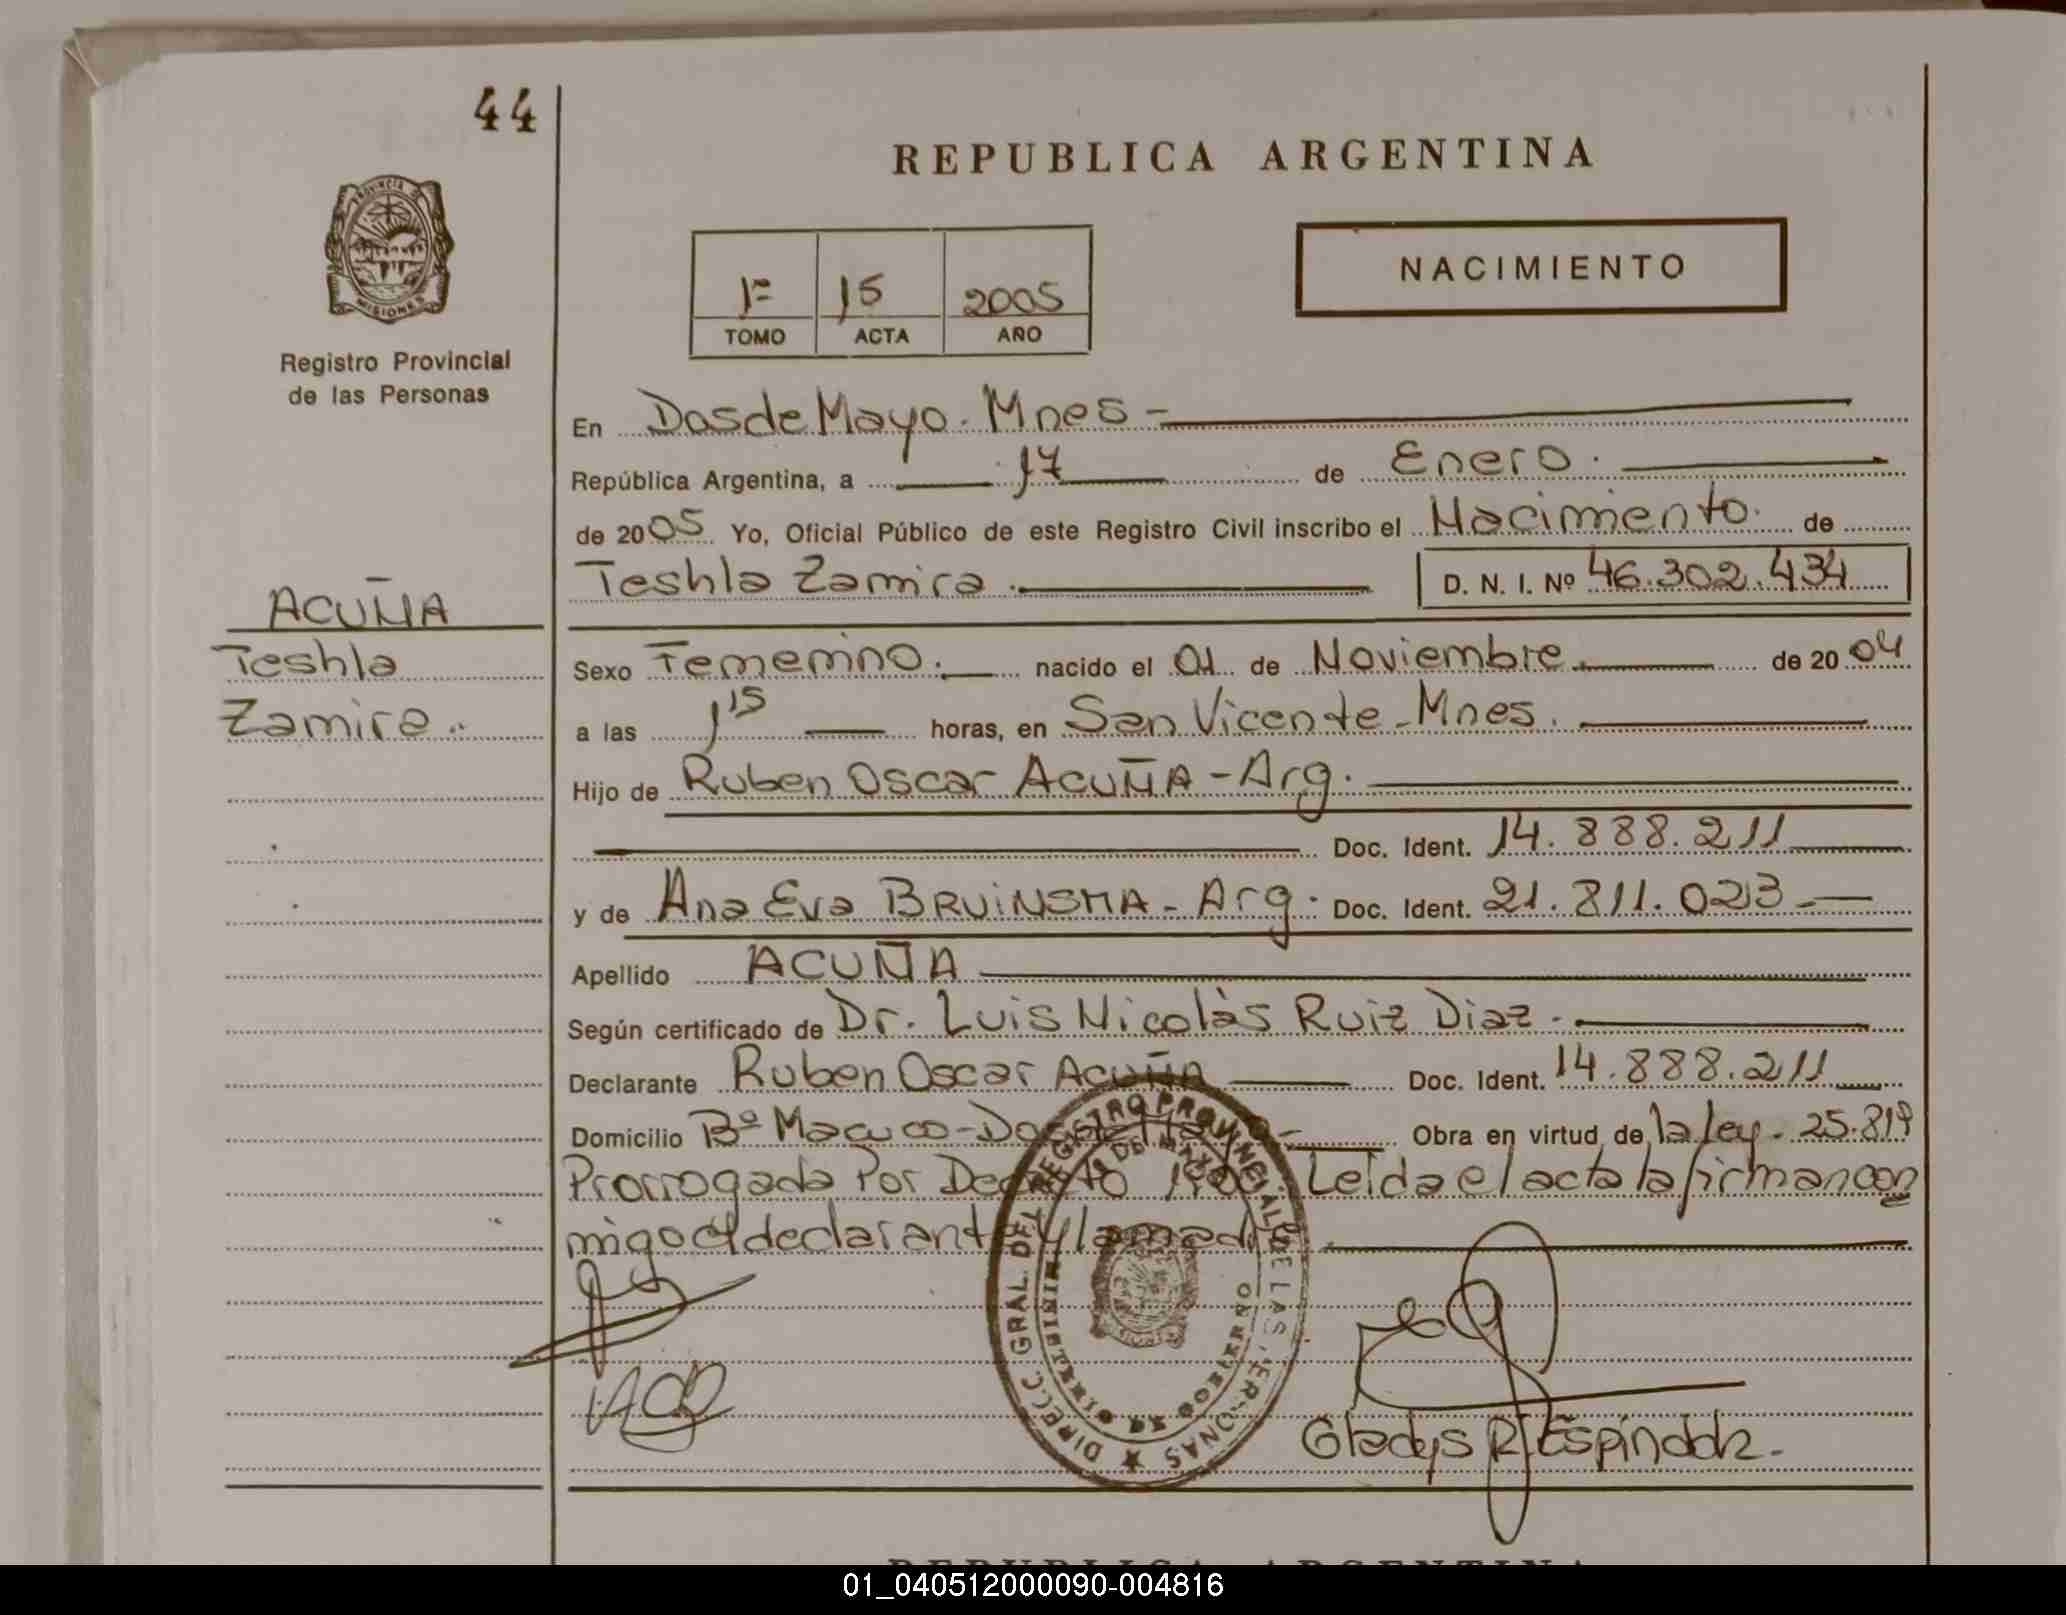 44
REPUBLICA ARGENTINA
PROVINCIA DE MISIONES
Registro Provincial
de las Personas
NACIMIENTO
1º 15 2005
TOMO ACTA AÑO
En Dos de Mayo. Mnes -
República Argentina, a 17 de Enero.
de 2005 Yo, Oficial Público de este Registro Civil inscribo el Nacimiento. de
Teshla Zamira. D. N. I. Nº 46.302.434
ACUÑA
Teshla
Zamira..
Sexo Femenino. nacido el 01 de Noviembre. de 2004
a las 1 15 horas, en San Vicente - Mnes.
Hijo de Ruben Oscar ACUÑA - Arg.
Doc. Ident. 14.888.211
y de Ana Eva BRUINSMA - Arg. Doc. Ident. 21.811.023 -
Apellido ACUÑA
Según certificado de Dr. Luis Nicolàs Ruiz Diaz.
Declarante Ruben Oscar Acuña Doc. Ident. 14.888.211
Domicilio Bº Macuco - Dos de Mayo - Obra en virtud de la ley - 25.819
Prorrogada Por Decreto Leída el acta la firman con
migo el declarante y la madre
DIRECC. GRAL. DEL REGISTRO PROVINCIAL DE LAS PERSONAS
DE MAYO
MINISTERIO DE GOBIERNO
Gladys R. Espíndola -
REPUBLICA ARGENTINA
01_040512000090-004816